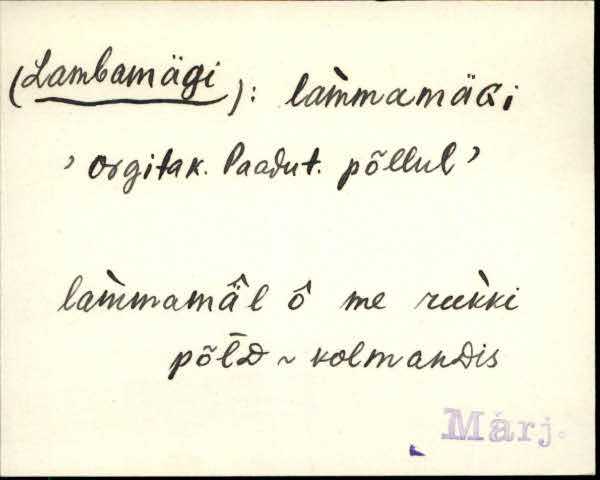 (Lambamägi): lam̀mamäɢi
, orgitak. laadut. põllul ’
lam̀mamä̂l ô me ruk̀ki
põl̄D ~ kolmanDis
Märj.